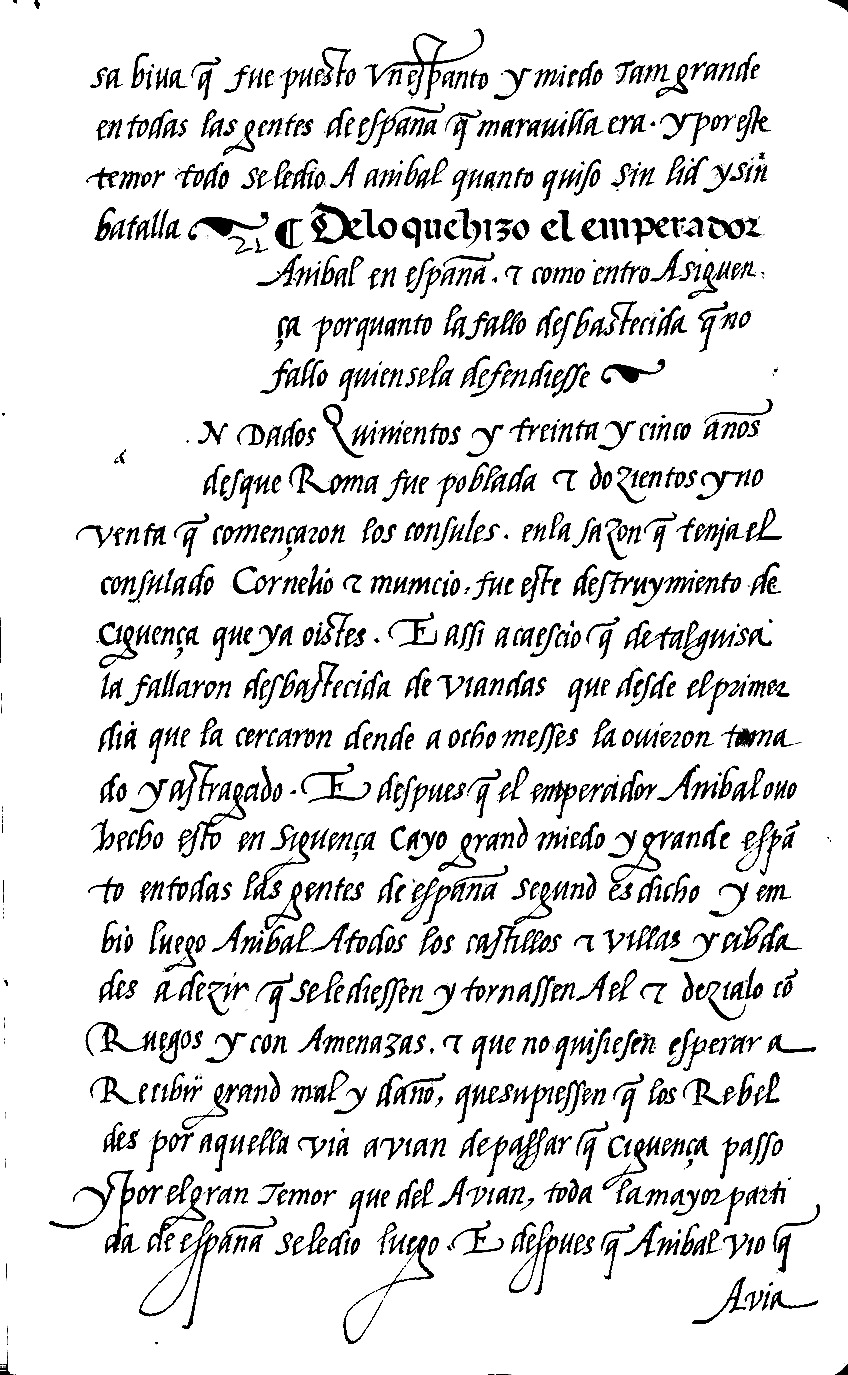 sa biua q̃ fue puesto vn espanto y miedo Tam grande
en todas las gentes de españa q̃ marauilla era. y por este
temor todo se le dio A anibal quanto quiso sin lid y sin
batalla 21 ¶ De lo que hizo el emperador
Anibal en españa. τ como entro A siguen
ça por quanto la fallo desbastecida q̃ no
fallo quien se la defendiesse
N Dados Quinientos y treinta y cinco años
desque Roma fue poblada τ dozientos y no
venta q̃ començaron los consules. en la sazon q̃ tenja el
consulado Cornelio τ mumcio, fue este destruymiento de
Ciguença que ya oistes. E assi acaescio q̃ de tal guisa
la fallaron desbastecida de viandas que desde el primer
dia que la cercaron dende a ocho messes la ouieron toma
do y astragado. E despues q̃ el emperador Anibal ouo
hecho esto en Siguença Cayo grand miedo y grande espã
to en todas las gentes de españa segund es dicho y em
bio luego Anibal A todos los castillos τ villas y cibda
des a dezir q̃ se le diessen y tornassen A el τ dezialo cõ
Ruegos y con Amenazas. τ que no quisiesen esperar a
Recibir grand mal y daño, que supiessen q̃ los Rebel
des por aquella via avian de passar q̃ Ciguença passo
y por el gran Temor que del Avian, toda la mayor parti
da de españa se le dio luego. E despues q̃ Anibal vio q̃
Avia